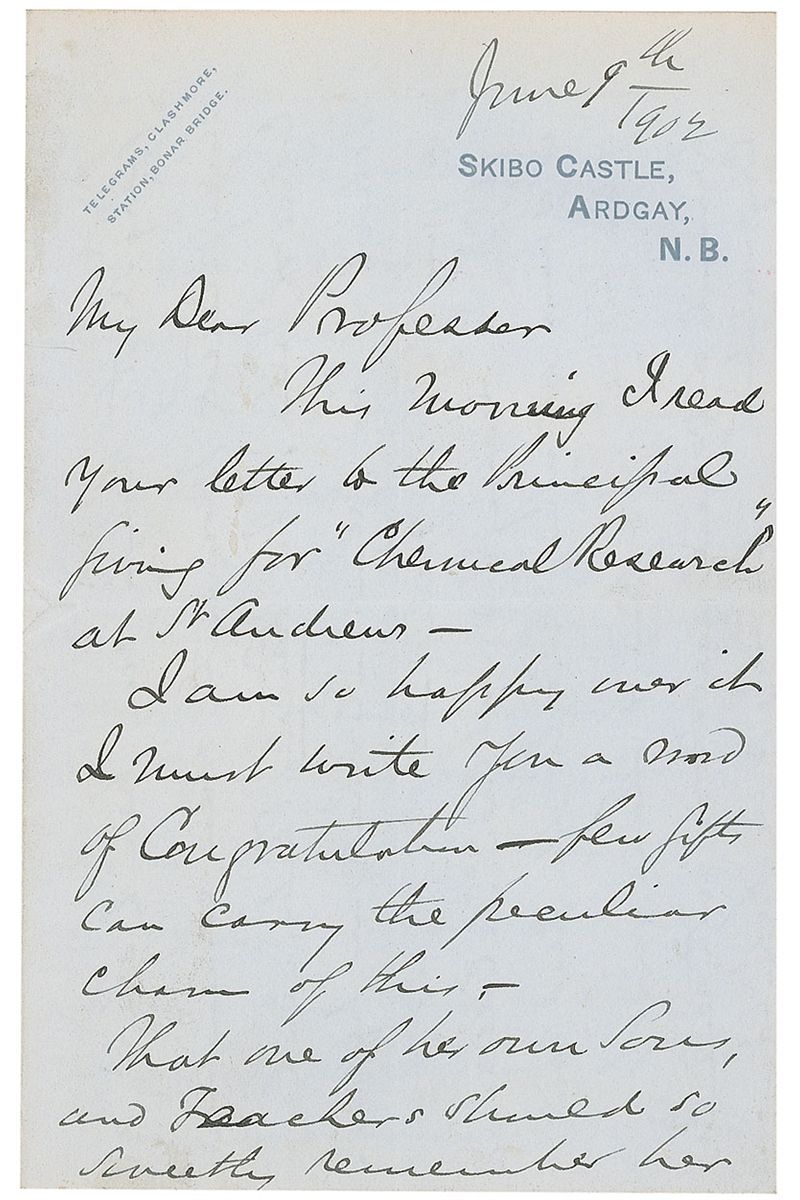 TELEGRAMS, CLASHMORE,
STATION, BONAR BRIDGE.
June 9th
1902
SKIBO CASTLE,
ARDGAY,
N.B.
My Dear Professor
This morning I read
your letter to the Principal
giving for "Chemical Research"
at St Andrews —
I am so happy over it
I must write you a word
of Congratulation — few gifts
can carry the peculiar
charm of this, —
That one of her own Sons,
and Teachers should so
sweetly remember her